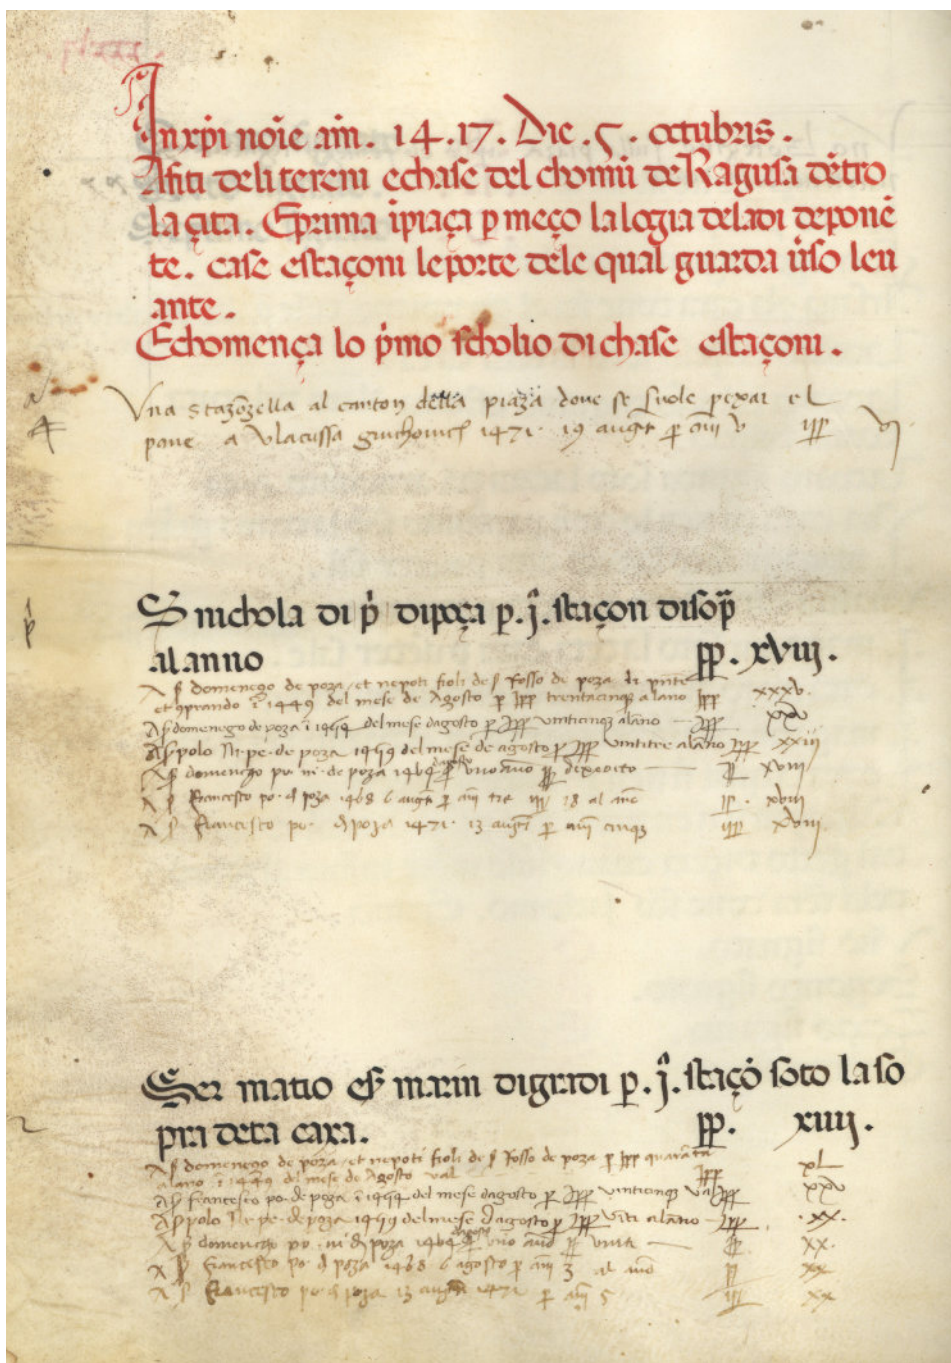 In xp̄i noīe am̄. 14.17. Die. 5. octubris.
Afiti deli tereni echase del chomū de Ragusa dētro
la çita. Eprima īpiaça p meço la logia deladi deponē
te. case estaçoni leporte dele qual guarda ūso leu
ante.
Echomença lo p̄mo scholio di chase estaçoni.
Vna stazōzella al canton della piaza doue se suole pexar el
pane a Vlacussa 1471. 19 aug p anī V ypp VI
S nichola di p̄ dipoça p. j̄. staçon disop̄
alanno pp. xviii.
A s domenego de poza et nepoti fioli de s Iosso de poza
ī 1449 del mese de Agosto p ypp trentacinque alano ypp xxxv.
A s domenego de poza ī 1454 del mese dagosto p ypp vinticinque alāno — ypp xxv
A s polo de poza 1459 del mese de agosto p ypp vintitre alāno ypp xxiii
A s domenego po. de poza 1464 p vno anno pp dixedoto — pp xviii
A s Francesco po. d poza 1468 6 aug p anī tre 18 al anō pp. xviii
A s Francesco po. d poza 1471. 13 aug p anī cinque ypp xviii
Ser matio es̄ marin digradi p. j̄. staçō soto la so
pra deta caxa. pp. xiiii.
A s domenego de poza et nepoti fioli de s Iosso de poza p ypp quarāta
alano ī 1449 del mese de Agosto val ypp xL
A s Francesco po. de poza ī 1454 del mese dagosto p ypp vinticinque val ypp xxv
A s polo de poza 1459 del mese d agosto p ypp vīti alāno — ypp .xx.
A s domenego po. d poza 1464 p vno anō pp vinti — pp xx.
A s Francesco po. d poza 1468 6 agosto p anī 3 al anō pp xx
A s Francesco po. d poza 13 aug 1471 p anī 5 ypp xx